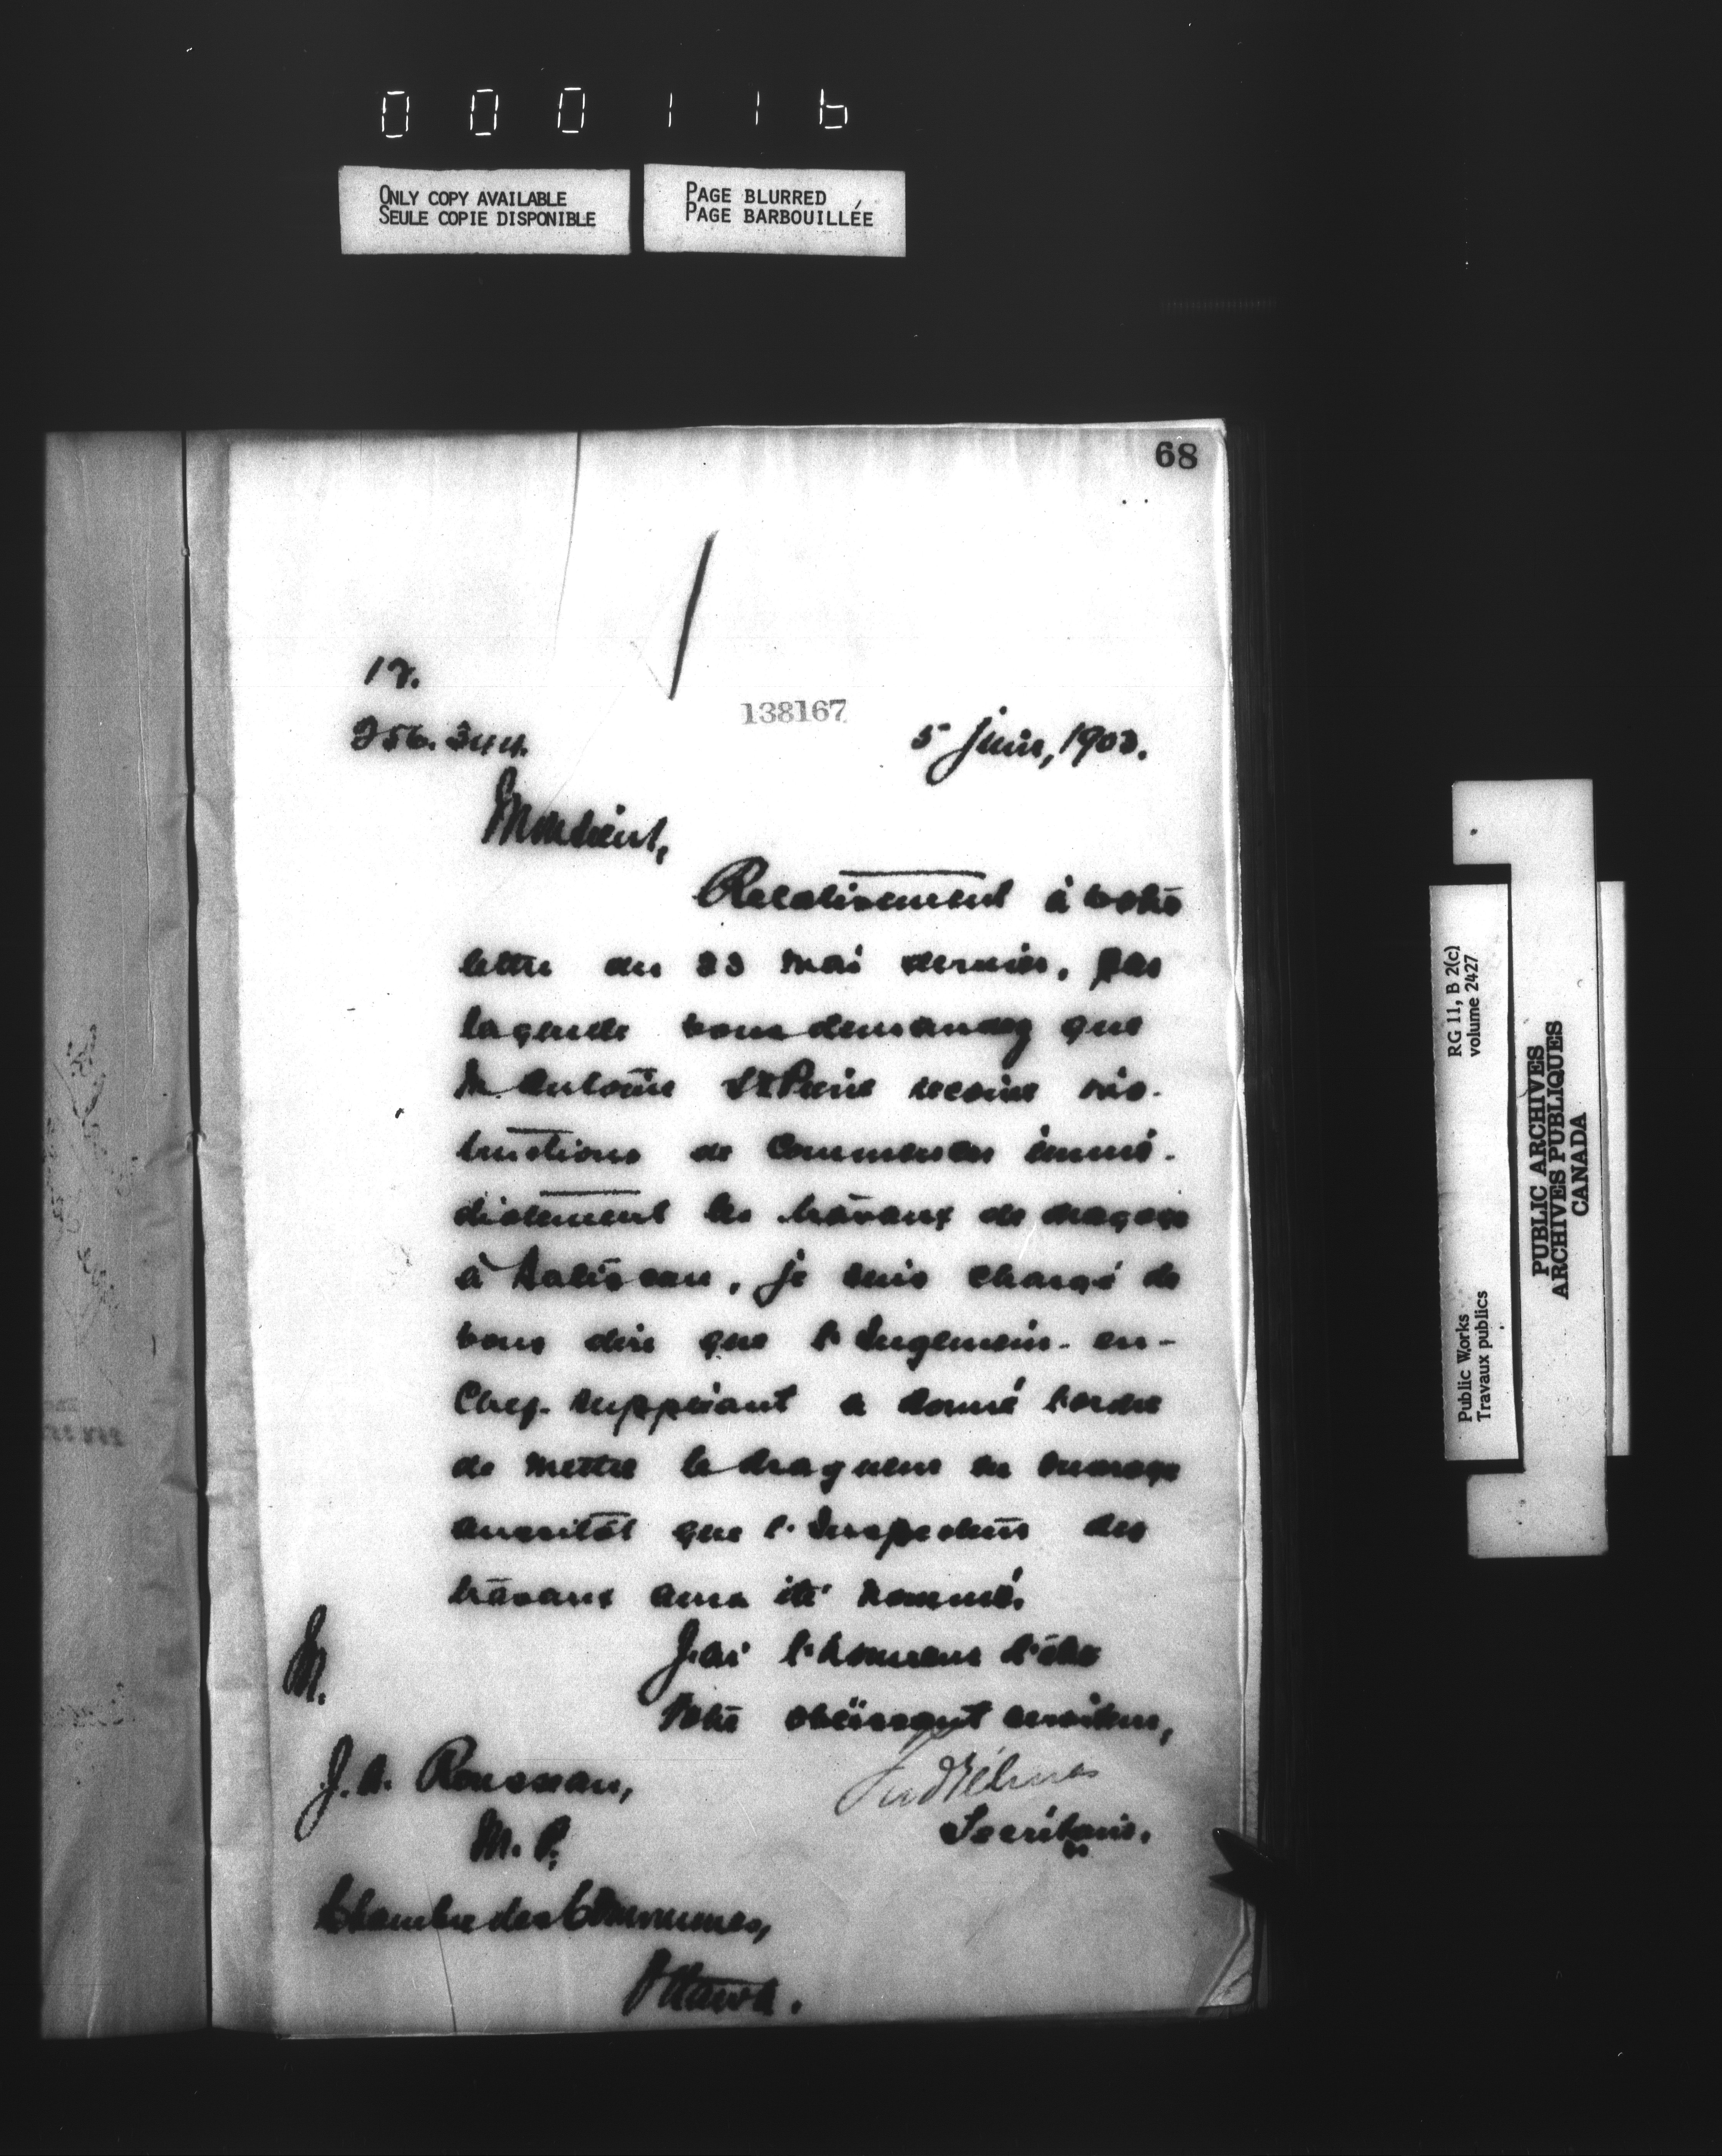 000116
ONLY COPY AVAILABLE
SEULE COPIE DISPONIBLE
PAGE BLURRED
PAGE BARBOUILLÉE
68
138167
5 juin, 1903.
Monsieur,
Relativement à votre
lettre du 23 mai dernier, par
laquelle vous demandez que
M. Antoine St Pierre reçoive ins-
tructions de commencer immé-
diatement les travaux de dragage
à Batiscan, je suis chargé de
vous dire que l'Ingénieur-en-
Chef suppléant a donné l'ordre
de mettre le dragueur en ouvrage
aussitôt que l'Inspecteur des
travaux aura été nommé.
J'ai l'honneur d'être
Votre obéissant serviteur,
Secrétaire.
M.
J. A. Rousseau,
M. P.
Chambre des Communes,
Ottawa.
RG 11, B 2(c)
volume 2427
Public Works
Travaux publics
PUBLIC ARCHIVES
ARCHIVES PUBLIQUES
CANADA